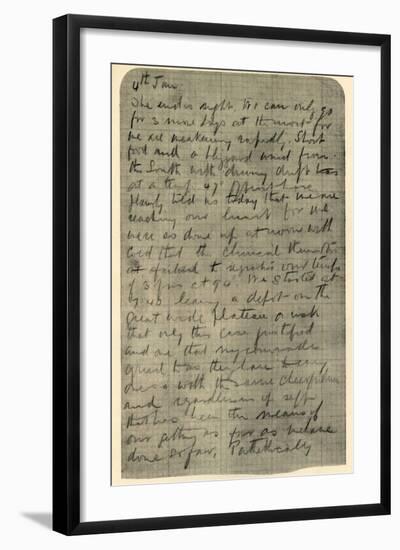 4th Jan.
The end is in sight. We can only go
for 3 more days at the most for
we are weakening rapidly. Short
food and a blizzard wind from
the South with driving drift
at a temp 47°
plainly told us today that we are
reaching our limit for we
were so done up at noon with
cold that the clinical thermometer
failed to register our temps
of 3 men at 94°. We started at
7.40 leaving a depot on the
great wide plateau a risk
that only this case justified
and one that my comrades
agreed to as they have every
one with the same cheerfulness
and regardlessness of self
that has been the means of
our getting as far as we have
done so far. Pathetically